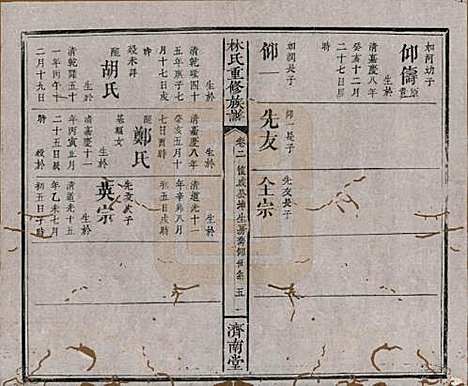 如河幼子
仰儔
清嘉慶八年
癸亥十二月
二十七日
如潤長子
仰一
仰一長子
先友
先友長子
全宗
林氏重修族譜
卷二
五
濟南堂
生於
清乾隆四十
五年庚子七
月十七日戌時
歿未詳
配
胡氏
生於
清乾隆五十
一年丙
二月十九日
生於
清嘉慶八年
癸亥五月十
七日酉時
配
鄭氏
生於
清嘉慶十一
年丙寅五月
二十五日辰時
歿於
生於
清道光十一
年辛卯八月
初五日戌時
先友次子
英宗
生於
清道光十五
年乙未七月
初五日子時